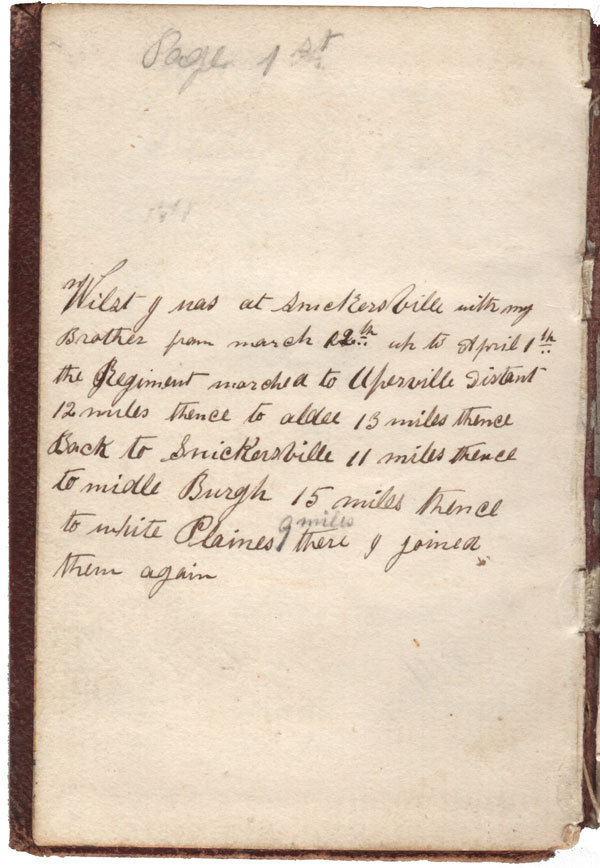 Page 1st
Wilst I was at Snickersville with my
Brother from march 12th up to April 1th
the Regiment marched to Uperville distant
12 miles thence to aldee 13 miles thence
Back to Snickersville 11 miles thence
to midle Burgh 15 miles thence
to white Plaines 9 miles there I joined
them again